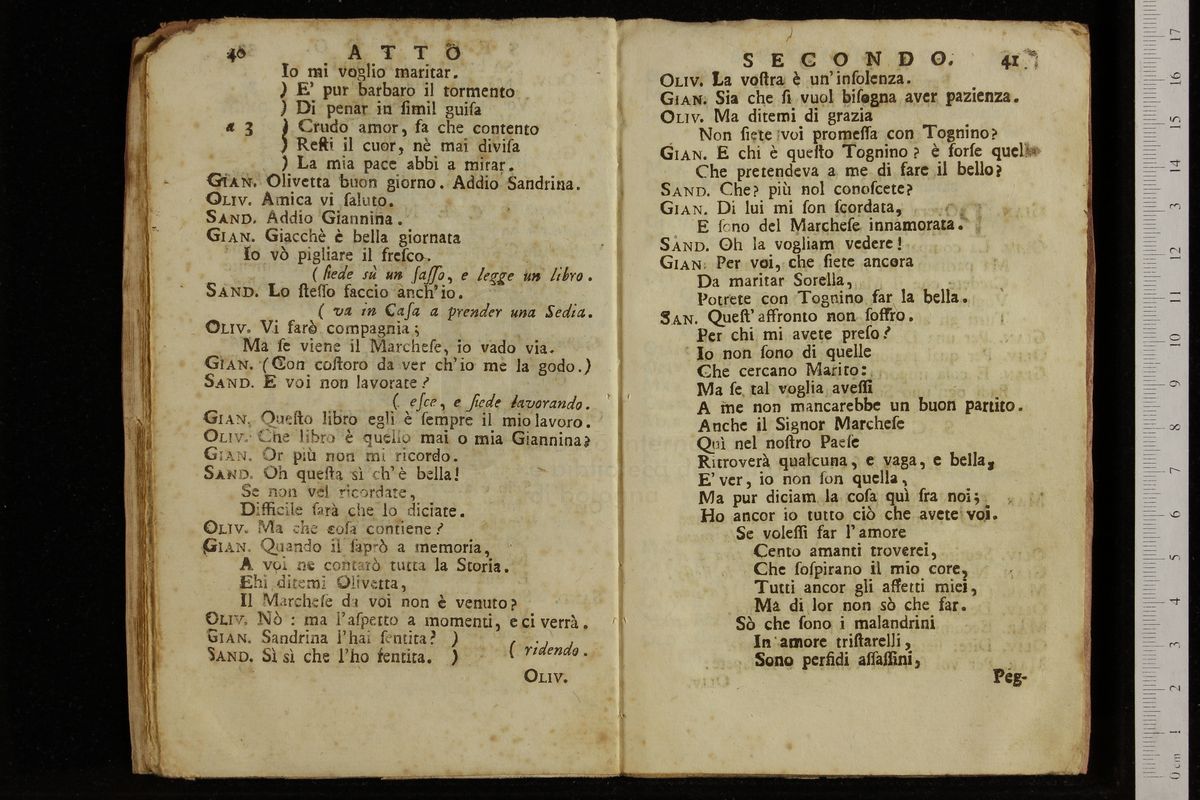 40 A T T O
Io mi voglio maritar.
) E' pur barbaro il tormento
) Di penar in ſimil guiſa
a 3 ) Crudo amor, fa che contento
) Reſti il cuor, nè mai diviſa
) La mia pace abbi a mirar.
GIAN. Olivetta buon giorno. Addio Sandrina.
OLIV. Amica vi ſaluto.
SAND. Addio Giannina.
GIAN. Giacchè è bella giornata
Io vò pigliare il freſco.
( ſiede sù un ſaſſo, e legge un libro.
SAND. Lo ſteſſo faccio anch'io.
( va in Caſa a prender una Sedia.
OLIV. Vi farò compagnia;
Ma ſe viene il Marcheſe, io vado via.
GIAN. (Con coſtoro da ver ch'io me la godo.)
SAND. E voi non lavorate?
( eſce, e ſiede lavorando.
GIAN. Queſto libro egli è ſempre il mio lavoro.
OLIV. Che libro è quello mai o mia Giannina?
GIAN. Or più non mi ricordo.
SAND. Oh queſta sì ch'è bella!
Se non vel ricordate,
Difficile ſarà che lo diciate.
OLIV. Ma che coſa contiene?
GIAN. Quando il ſaprò a memoria,
A voi ne contarò tutta la Storia.
Ehi ditemi Olivetta,
Il Marcheſe da voi non è venuto?
OLIV. Nò : ma l'aſpetto a momenti, e ci verrà.
GIAN. Sandrina l'hai ſentita? )
SAND. Sì sì che l'ho ſentita. ) ( ridendo.
OLIV.
S E C O N D O. 41
OLIV. La voſtra è un'inſolenza.
GIAN. Sia che ſi vuol biſogna aver pazienza.
OLIV. Ma ditemi di grazia
Non ſiete voi promeſſa con Tognino?
GIAN. E chi è queſto Tognino? è forſe quello
Che pretendeva a me di fare il bello?
SAND. Che? più nol conoſcete?
GIAN. Di lui mi ſon ſcordata,
E ſono del Marcheſe innamorata.
SAND. Oh la vogliam vedere!
GIAN. Per voi, che ſiete ancora
Da maritar Sorella,
Potrete con Tognino far la bella.
SAN. Queſt'affronto non ſoffro.
Per chi mi avete preſo?
Io non ſono di quelle
Che cercano Marito:
Ma ſe tal voglia aveſſi
A me non mancarebbe un buon partito.
Anche il Signor Marcheſe
Quì nel noſtro Paeſe
Ritroverà qualcuna, e vaga, e bella,
E' ver, io non ſon quella,
Ma pur diciam la coſa quì fra noi;
Ho ancor io tutto ciò che avete voi.
Se voleſſi far l'amore
Cento amanti troverei,
Che ſoſpirano il mio core,
Tutti ancor gli affetti miei,
Ma di lor non sò che far.
Sò che ſono i malandrini
In amore triſtarelli,
Sono perfidi aſſaſſini,
Peg-